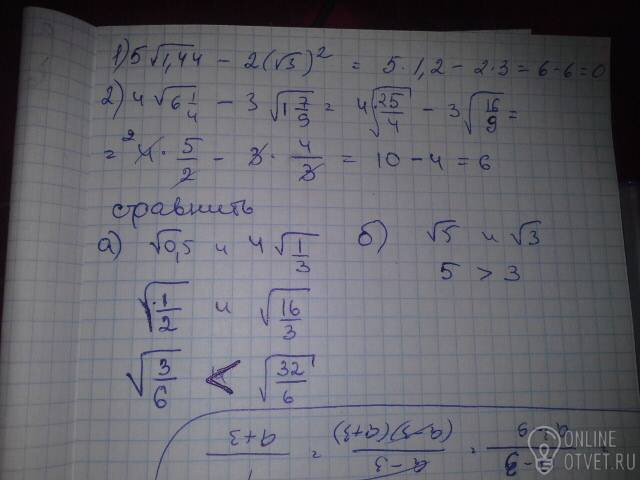 1) 5√1,44 - 2(√3)² = 5·1,2 - 2·3 = 6-6=0
2) 4√6 1/4 - 3√1 7/9 = 4√25/4 - 3√16/9 =
= ²4 · 5/2 - 3 · 4/3 = 10 - 4 = 6
сравнить
а) √0,5 и 4√1/3 б) √5 и √3
√1/2 и √16/3 5 > 3
√3/6 < √32/6
ONLINE
OTVET.RU